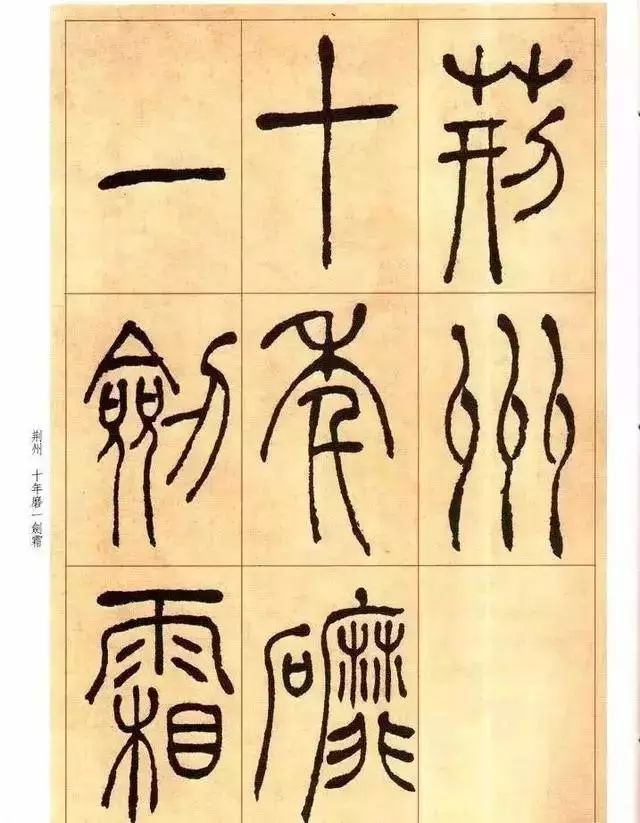 荆州
十年磨
一劍霜
荆州 十年磨一劍霜